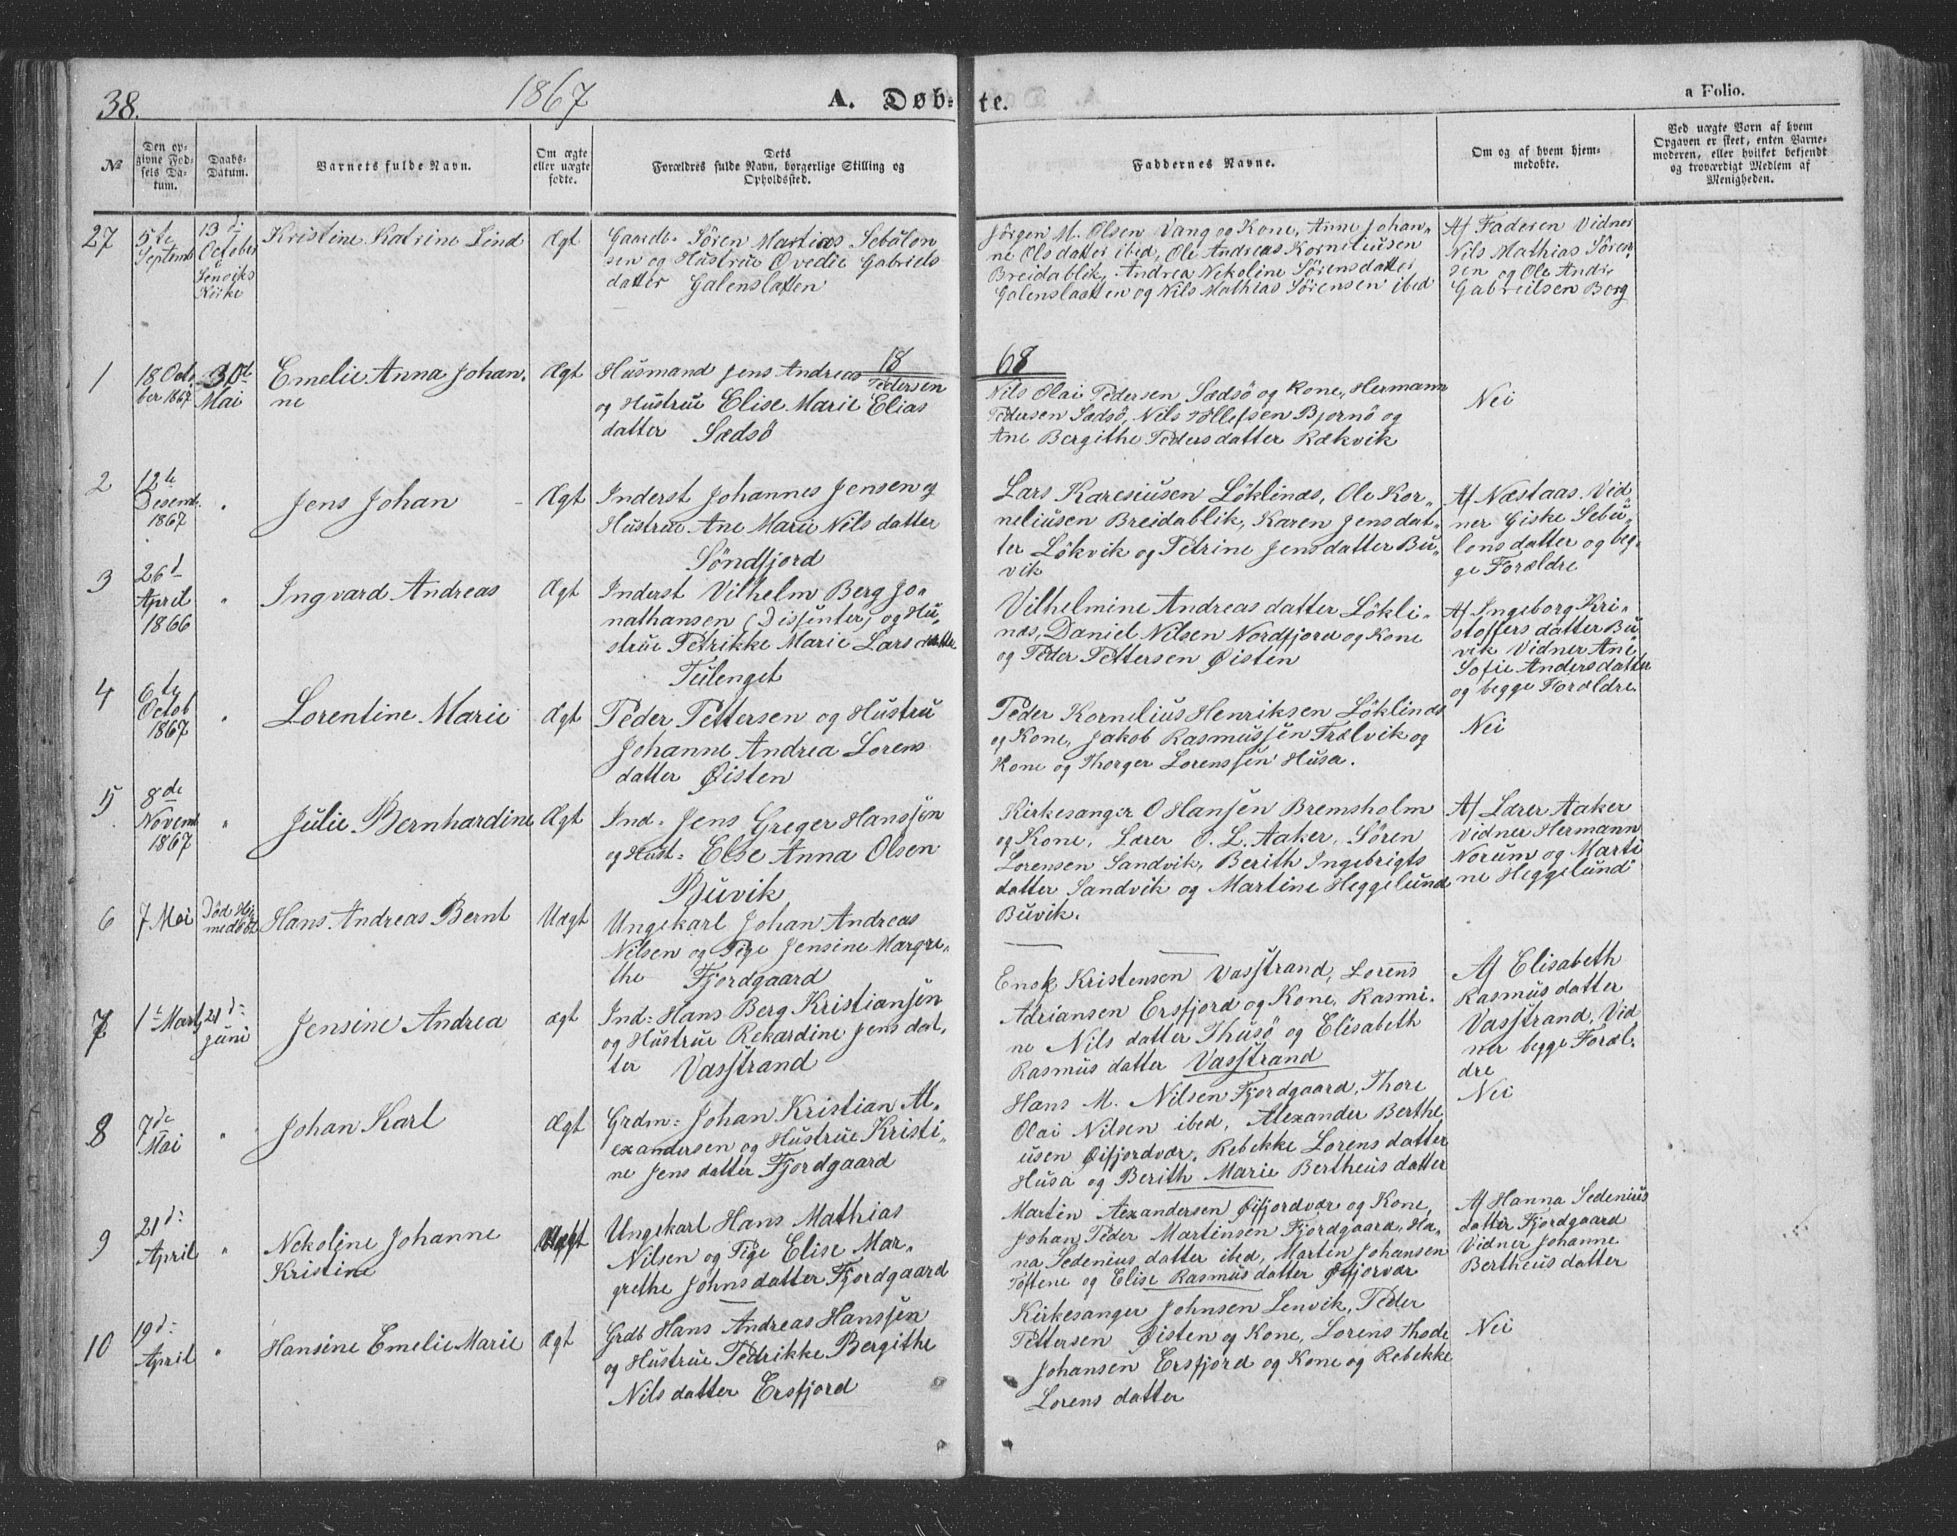 38.
1867
A. Døb-te.
a Folio.
№
Den op-
givne Fød-
sels Da-
tum.
Daabs-
Datum.
Barnets fulde Navn.
Om ægte
eller uægte
fødte.
Dets
Forældres fulde Navn, borgerlige Stilling og
Opholdssted.
Faddernes Navne.
Om og af hvem hjem-
medøbte.
Ved uægte Børn af hvem
Opgaven er skeet, enten Barne-
moderen, eller hvilket bekjendt
og troværdigt Medlem af
Menigheden.
27
5te
Septemb
13d
October
Lenviks
Kirke
Kristine Katrine Lind
Ægt
Gaardb. Sören Martias Sebulon
sen og Hustrue Ovedie Gabriels
datter Galenslatten
Jörgen M. Olsen Vang og Kone, Anne Johan-
ne Olsdatter ibed, Ole Andreas Korneliusen
Breidablik, Andrea Nekoline Sörensdatter
Galenslaatten og Nils Mathias Sörensen ibed
Af Faderen Vidner
Nils Mathias Sören-
sen og Ole Andr:
Gabrielsen Borg
1868
1
18 Octo
ber 1867
30te
Mai
Emelie Anna Johan-
ne
Ægt
Husmand Jens Andreas Pedersen
og Hustrue Elise Marie Elias
datter Sædsö
Nils Olai Pedersen Sædsö og Kone, Hermann
Pedersen Sædsö, Nils Tollefsen Bjornö og
Ane Bergithe Pedersdatter Rækvik
Nei
2
12te
Desemb.
1867
"
Jens Johan
Ægt
Inderst Johannes Jensen og
Hustrue Ane Marie Nils datter
Söndfjord
Lars Karesiusen Löklinds, Ole Kor-
neliusen Breidablik, Karen Jensdat-
ter Lökvik og Petrine Jensdatter Bu-
vik
Af Næstaas Vid-
ner Giske Sebu-
lonsdatter og beg-
ge Forældre
3
26d
April
1866
"
Ingvard Andreas
Ægt
Inderst Vilhelm Berg Jo-
nathansen (Dissenter) og Hu-
strue Petrikke Marie Lars datter
Teilenget
Vilhelmine Andreas datter Lökli-
nds, Daniel Nilsen Nordfjord og Kone
og Peder Pettersen Øisten
Af Ingeborg Kri-
stoffersdatter Bu
vik Vidner Ane
Sofie Andersdatter
og begge Forældre.
4
6te
Octob
1867
"
Lorentine Marie
Ægt
Peder Pettersen og Hustru
Johanne Andrea Lorens
datter Øisten
Peder Kornelius Henriksen Löklinds
og Kone, Jakob Rasmussen Trælvik og
Kone og Thorger Lorenssen Husa.
Nei
5
8de
Novemb
1867
"
Julie Bernhardine
Ægt
Ind: Jens Greger Hanssen
og Hust: Else Anna Olsen
Buvik
Kirkesanger O Hansen Bremsholm
og Kone, Lærer O. L. Aaker, Sören
Lorensen Sandvik, Berith Ingebrigts
datter Sandvik og Martine Heggelund
Buvik.
Af Lærer Aaker
Vidner Hermann
Norum og Marti
ne Heggelund
6
7 Mai
Död Hj.
medöbt
Hans Andreas Bernt
Uægt
Ungekarl Johan Andreas
Nilsen og Pige Jensine Margre-
the Fjordgaard
7
1te Marts
21d:
Juni
Jensine Andrea
ægt
Ind: Hans Berg Kristiansen
og Hustrue Rekardine Jens dat-
ter Vasstrand
Enok Kristensen Vasstrand, Lorens
Adriansen Ersfjord og Kone, Rasmi-
ne Nils datter Thusö og Elisabeth
Rasmus datter Vasstrand
Af Elisabeth
Rasmus datter
Vasstrand, Vid
ner begge Foræl-
dre
8
7de
Mai
"
Johan Karl
Ægt
Grdm: Johan Kristian Al-
exandersen og Hustrue Kristi-
ne Jens datter Fjordgaard
Hans M. Nilsen Fjordgaard, Thore
Olai Nilsen ibed, Alexander Berthe
usen Øifjordvær, Rebekke Lorens datter
Husa og Berith Marie Bertheus datter
Nei
9
21d:
April
"
Nekoline Johanne
Kristine
Uægt
Ungekarl Hans Mathias
Nilsen og Pige Elise Mar-
grethe Johnsdatter Fjordgaard
Martin Alexandersen Øifjordvær og Kone,
Johan Peder Martinsen Fjordgaard, Ha-
na Sedenius datter ibed, Martin Johansen
Toftene og Elise Rasmus datter Øifjorvær
Af Hanna Sedenius
datter Fjordgaard
Vidner Johanne
Bertheus datter
10
19d:
April
"
Hansine Emelie Marie
Ægt
Grdb Hans Andreas Hanssen
og Hustrue Pedrikke Bergithe
Nils datter Ersfjord
Kirkesanger Johnsen Lenvik, Peder
Pettersen Øisten og Kone, Lorens Thode
Johansen Ersfjord og Kone og Rebekke
Lorens datter
Nei